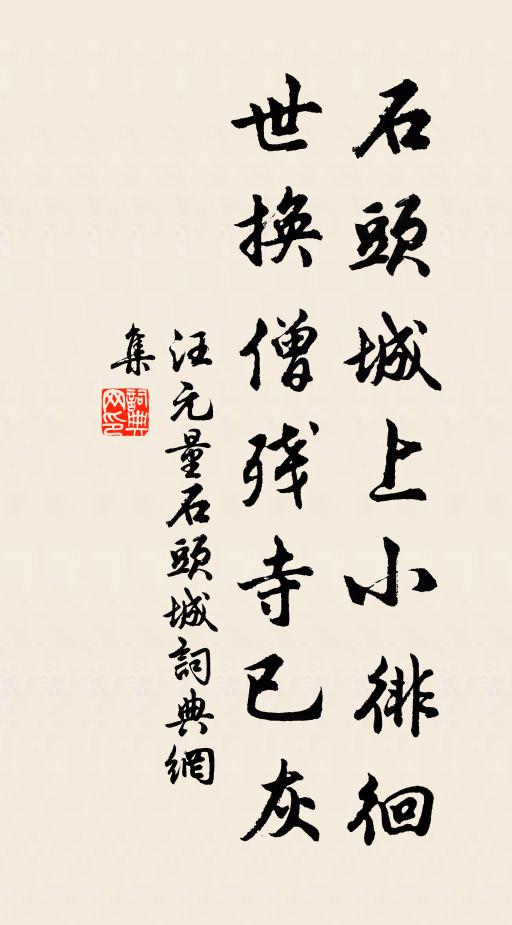 石頭城上小徘徊
世換僧殘寺已灰
汪元量石頭城詞典網
集
詞典
网印